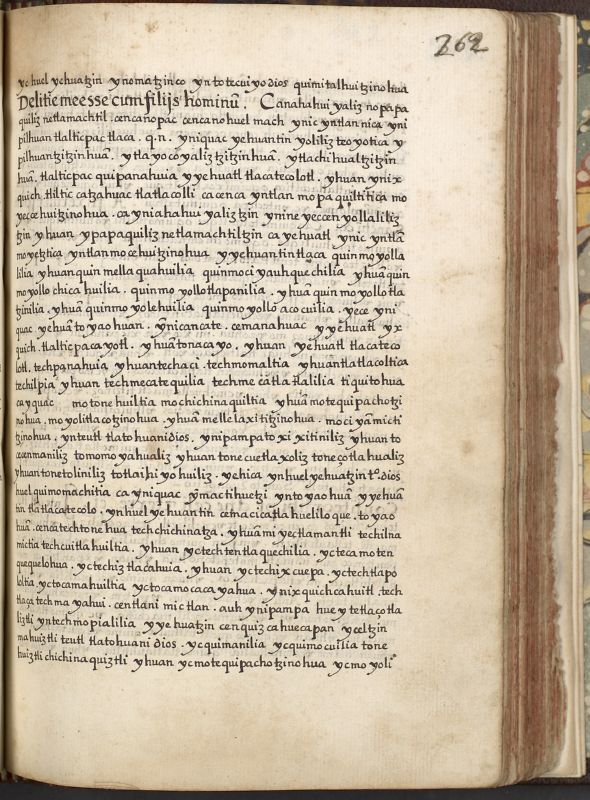 262
yc huel yehuatzin ynomatzinco yn totecuiyo dios quimitalhuitzinohua
Delitie mee esse cum filijs hominū. Canahahuiyaliz nopapa
quiliz netlamachtil. cencanopac cencanohuel mach ynic yntlan nica yni
pilhuan tlalticpac tlaca. q.n. yniquac yehuantin yoliliz teoyotica y
pilhuantzitzinhuā. ytlayocoyaliztzitzinhuā. ytlachihualtzitzin
huā. tlalticpac quipanahuia yyehuatl tlacatecolotl. yhuan ynix
quich. tliltic catzahuac tlatlacolli ca cenca yntlan mopaquiltitica mo
yeccehuitzinohua. ca yniahahuiyaliztzin ynineyeccen yollaliliz
tzin yhuan ypapaquiliz netlamachtiltzin ca yehuatl ynic yntlā
moyetztica yntlan mocehuitzinohua yyehuantin tlaca quinmoyolla
lilia yhuan quin mellaquahuilia quinmociyauhquechilia yhuā quin
moyollochicahuilia. quinmoyollotlapanilia. yhuā quinmoyollotla
tzinilia. yhuā quinmoyolehuilia quinmoyolloacocuilia. yece yni
quac yehuāto yaohuan. ynicancate. cemanahuac yyehuatl yx
quich. tlalticpacayotl. yhuā tonacayo. yhuan yehuatl tlacateco
lotl. techpanahuia yhuan techaci. techmomaltia yhuan tlatlacoltica
techilpia yhuan techmecatequilia techmecātlatlalilia tiquitohua
ca yquac motonehuiltia mochichinaquiltia yhuā motequipachotzi
nohua. moyolitlacotzinohua. yhuā mellelaxititzinohua. mociyāmicti
tzinohua. ynteutl tlatohuani dios. ynipampa toxixitiniliz yhuan to
cenmaniliz tomomoyahualiz yhuan tonecuetlaxoliz tonezotlahualiz
yhuan tonetoliniliz totlaihiyohuiliz. yehica ynhuel yehuatzin tº. dios
huel quimomachitia ca yniquac ymac tihuetzi yn toyaohuā yyehuā
tin tlatlacatecolo. yn huel yehuantin cetnaci catlahueliloque. toyao
huā. cenca techtonehua techchichinatza. yhuā miyectlamantli techilna
mictia techcuitlahuiltia. yhuan yctechtentlaquechilia. yctecamoten
quequelohua. yctechiztlacahuia. yhuan yctechixcuepa. yctechtlapo
loltia. yctocamahuiltia yctocamocacayahua. ynixquichcahuitl. tech
tlaça techmayahui. centlani mictlan. auh ynipampa hueytetlaçotla
liztli yntechmopialilia yyehuatzin cenquizcahuecapan yceltzin
mahuiztli teutl tlatohuani dios. ycquimanilia ycquimocuilia tone
huiztli chichinaquiztli yhuan ycmotequipachotzinohua ycmoyoli